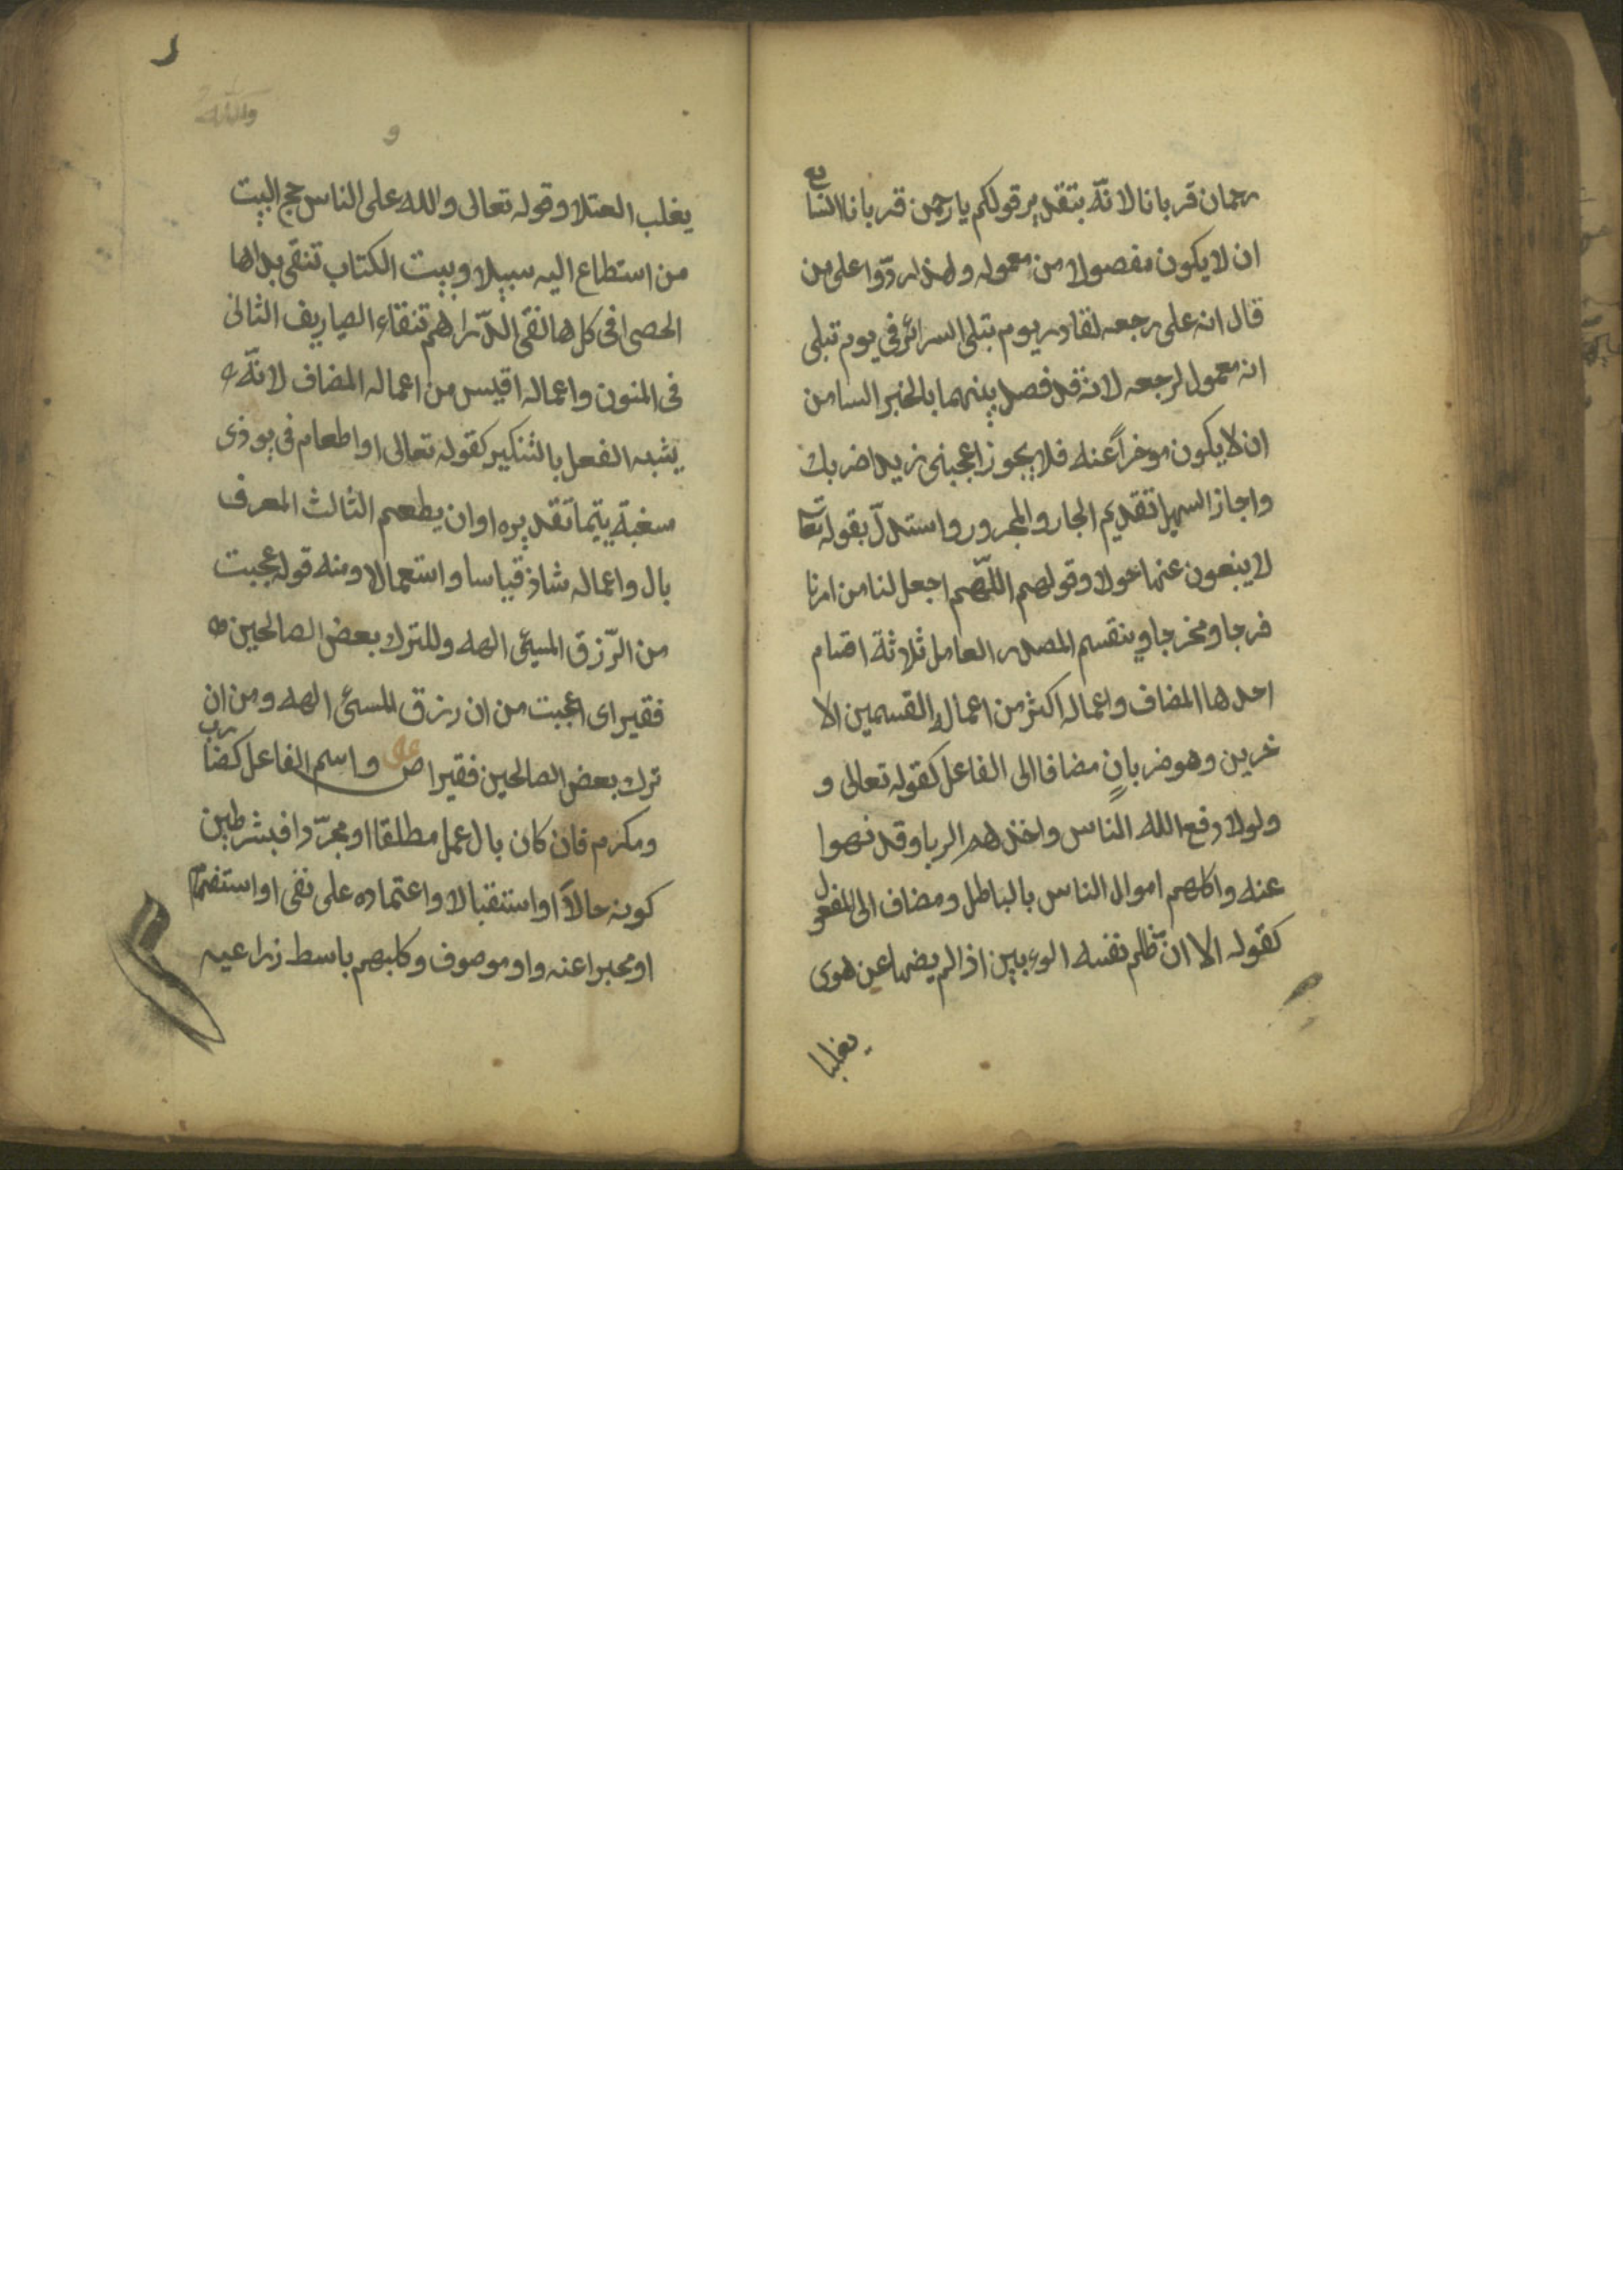 رحمان قربانا لانّه بتقدير قولكم يا رحمن قربانا السابع
ان لا يكون مفصولا من معموله ولهذا ردّوا على من
قال انه على رجعه لقادر يوم تبلى السرائر في يوم تبلى
انه معمول لرجعه لانه قد فصل بينهما بالخبر السامن
ان لا يكون موخراً عنه فلا يجوز اعجبنى زيدا ضربك
واجاز السهيلي تقديم الجار والمجرور واستدلّ بقوله تعا
لا يبغون عنها حولا وقولهم اللّهم اجعل لنا من امرنا
فرجا ومخرجا وينقسم المصدر العامل ثلاثة اقسام
احدها المضاف واعماله اكثر من اعمال القسمين الا
خرين وهو ضربان مضاف الى الفاعل كقوله تعالى و
ولولا دفع الله الناس واخذهم الربا وقد نهوا
عنه واكلهم اموال الناس بالباطل ومضاف الى المفعول
كقوله الا ان ظلم نفسه المرء بين اذا لم يصنها عن هوى
يغلبا
يغلب العتلا وقوله تعالى ولله على الناس حج البيت
من استطاع اليه سبيلا وبيت الكتاب تنقى يداها
الحصى في كل ها نفى الدّراهم تنقاء الصياريف الثانى
فى المنون واعماله اقيس من اعماله المضاف لانّه
يشبه الفعل بالتنكير كقوله تعالى او اطعام في يوم ذى
سغبة يتيما تقديره او ان يطعم الثالث المعرف
بال واعماله شاذ قياسا واستعمالا ومنه قوله عجبت
من الرّزق المسيئ الهه وللترك بعض الصالحين
فقيرا اى اعجبت من ان رزق المسئ الهه ومن ان
ترك بعض الصالحين فقيرا ص واسم الفاعل كضارب
ومكرم فان كان بال عمل مطلقا او مجرّدا فبشرطين
كونه حالا او استقبالا واعتماده على نفى او استفهام
او مخبرا عنه واو موصوف وكلبهم باسط زراعيه